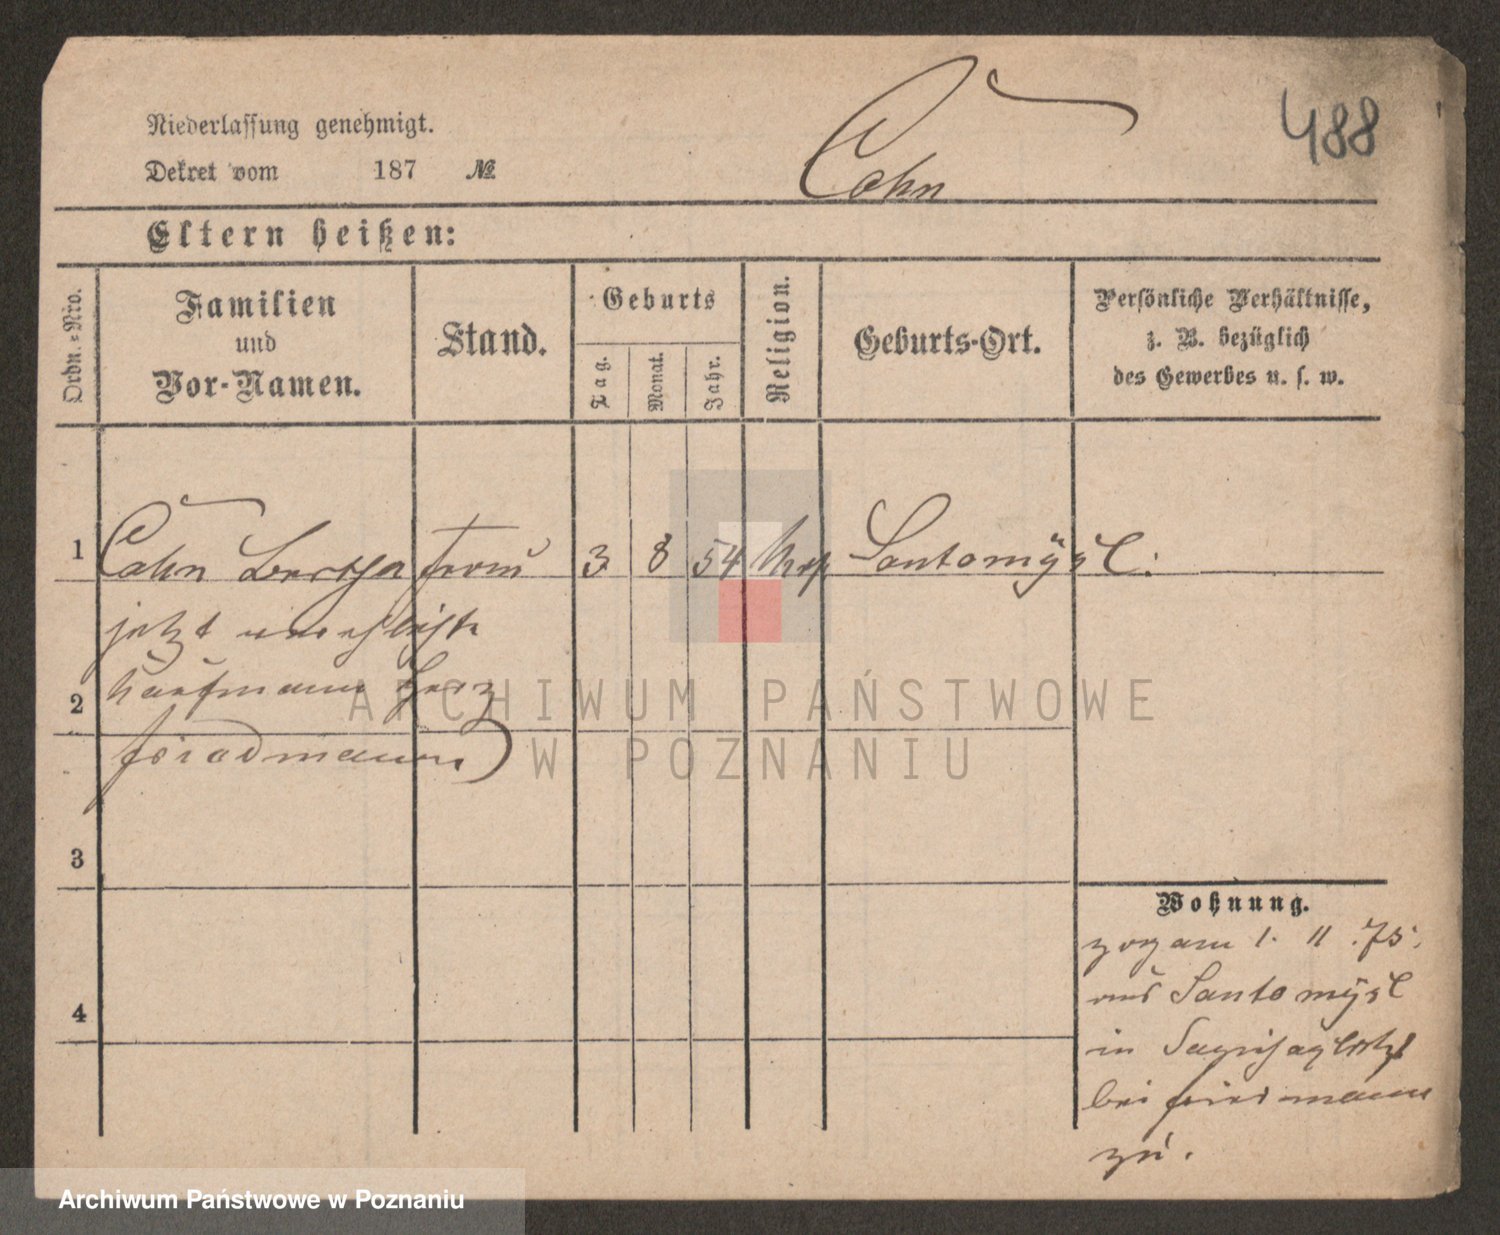 488
Niederlassung genehmigt.
Dekret vom 187 №
Cohn
Eltern heißen:
Ordn.-Nro.
Familien
und
Vor-Namen.
Stand.
Geburts
Tag.
Monat.
Jahr.
Religion.
Geburts-Ort.
Persönliche Verhältnisse,
z. B. bezüglich
des Gewerbes u. s. w.
1 Cohn Bertha 3 8 54 Santomÿsl.
jetzt verehlichte
2 Kaufmann Herz
Friedmann)
3
4
Wohnung.
zog am 1. 11. 75.
aus Santomÿsl
in
bei Friedmann
zu.
ARCHIWUM PAŃSTWOWE
W POZNANIU
Archiwum Państwowe w Poznaniu